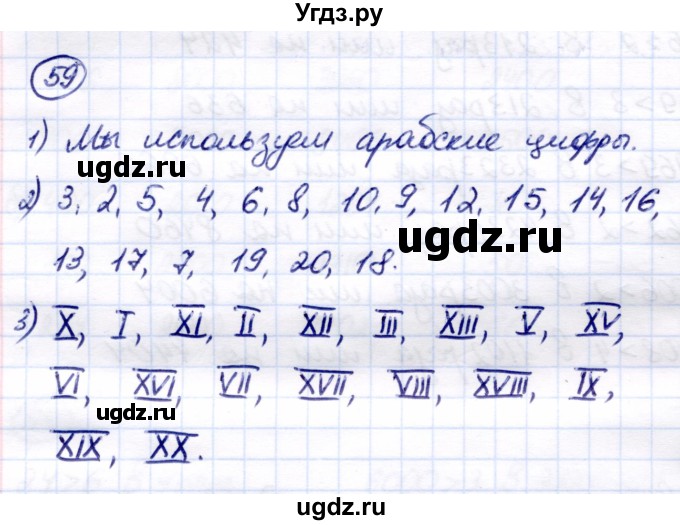 Угdz.ру
59
ugdz.ru
1) Мы используем арабские цифры.
ugdz.ru
2) 3, 2, 5, 4, 6, 8, 10, 9, 12, 15, 14, 16,
ugdz.ru
13, 17, 7, 19, 20, 18.
3) X, I, XI, II, XII, III, XIII, V, XV,
VI, XVI, VII, XVII, VIII, XVIII, IX,
ugdz.ru
ugdz.ru
XIX, XX.
ugdz.ru